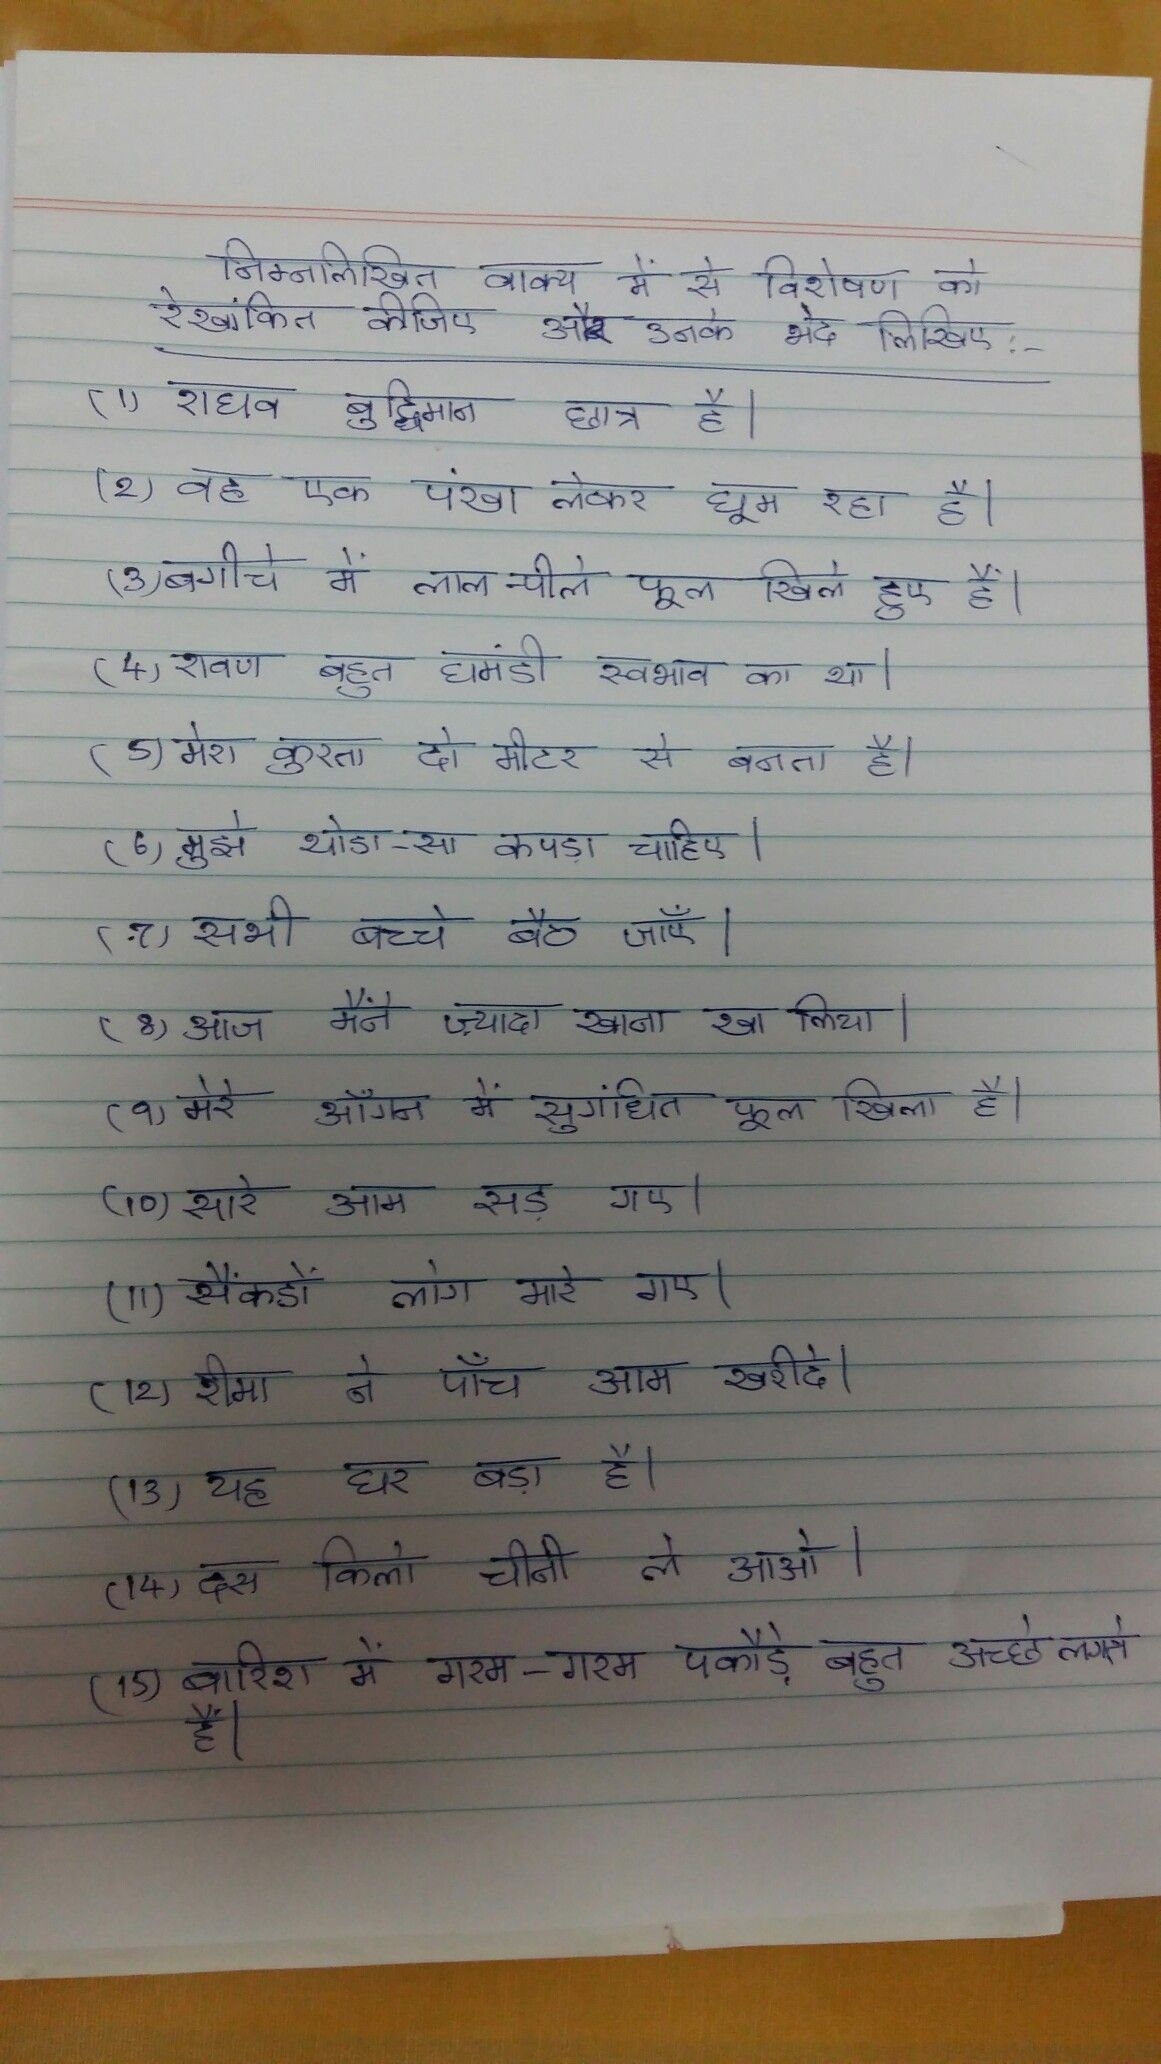 निम्नलिखित वाक्य में से विशेषण को
रेखांकित कीजिए और उनके भेद लिखिए :-
(1) राघव बुद्धिमान छात्र है।
(2) वह एक पंखा लेकर घूम रहा है।
(3) बगीचे में लाल-पीले फूल खिले हुए हैं।
(4) रावण बहुत घमंडी स्वभाव का था।
(5) मेरा कुरता दो मीटर से बनता है।
(6) मुझे थोडा-सा कपड़ा चाहिए।
(7) सभी बच्चे बैठ जाएँ।
(8) आज मैंने ज़्यादा खाना खा लिया।
(9) मेरे आँगन में सुगंधित फूल खिला है।
(10) सारे आम सड़ गए।
(11) सैंकडों लोग मारे गए।
(12) रीमा ने पाँच आम खरीदे।
(13) यह घर बड़ा है।
(14) दस किलो चीनी ले आओ।
(15) बारिश में गरम-गरम पकौड़े बहुत अच्छे लगते
हैं।